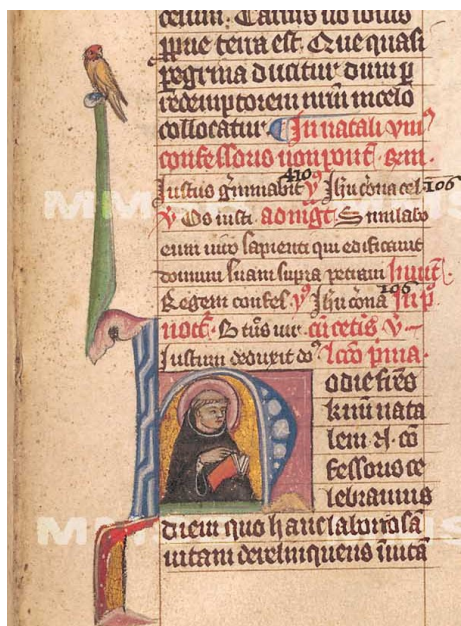 celum. Carnis uo
ppue terra est. Que quasi
peregrina ducitur dum p
redemptorem nrm in celo
collocatur. In natali vniꝰ
confessoris non pont.
Iustus gmiabit 410 Ihu cōna cel. 106
℣ Os iusti. ad Simulabo
eum uiro sapienti qui edificauit
domum suam supra petram. Inuit.
Regem confes Ihu cōna 106 In p
noct. Btūs uir. cū cetis. ℣
Iustum deduxit do Lcō pma.
Hodie frēs
kmi nata
lem N. cō
fessoris ce
lebramus
diem quo hanc laboriosā
uitam derelinquens inuitā